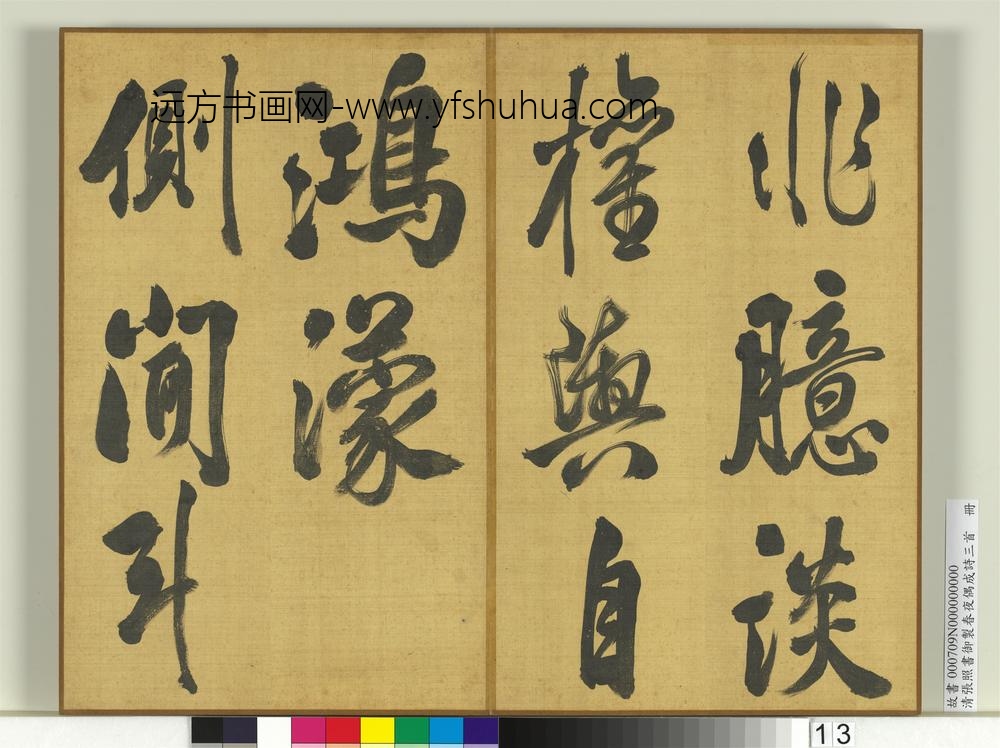 远方书画网-www.yfshuhua.com
非臆談
權輿自
鴻濛
側聞斗
故書 000709N000000000
清張照書御製春夜偶成詩三首 冊
13